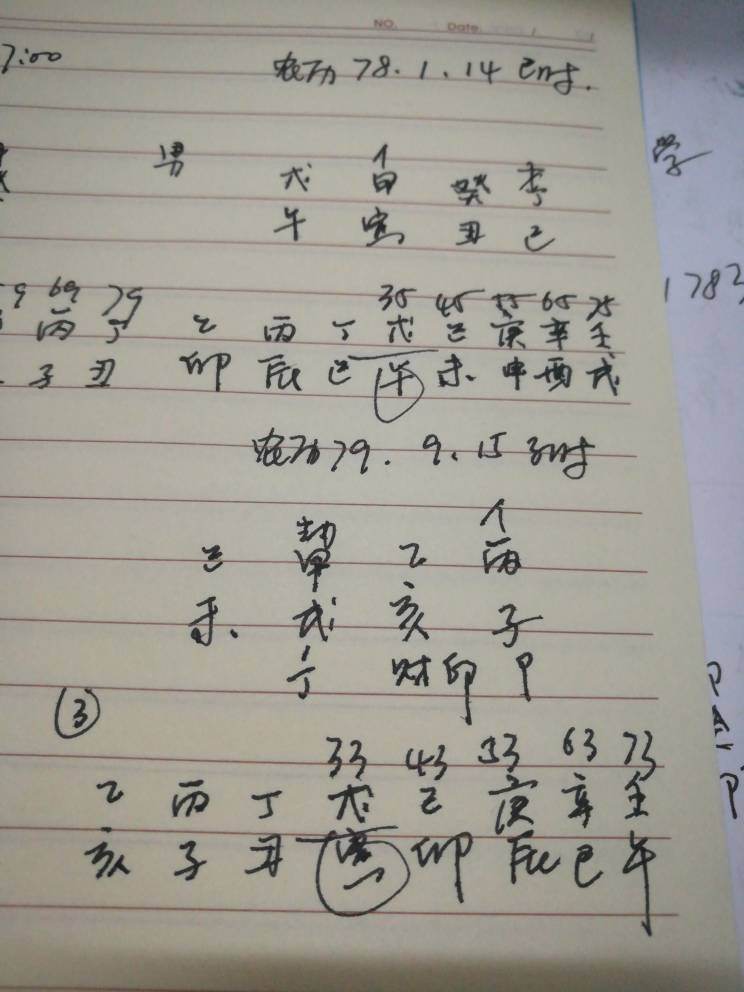 NO. Date.
7:00 农历 78.1.14 巳时.
男
戊 甲 癸
午 寅 丑 巳
学
69 79 35 45 55 65 75
丙 丁 乙 丙 丁 戊 己 庚 辛 壬
子 丑 卯 辰 巳 午 未 申 酉 戌
农历79.9.15 子时
己 甲 乙 丙
未. 戌 亥 子
丁 财印 P
③
33 43 53 63 73
乙 丙 丁 戊 己 庚 辛 壬
亥 子 丑 寅 卯 辰 巳 午